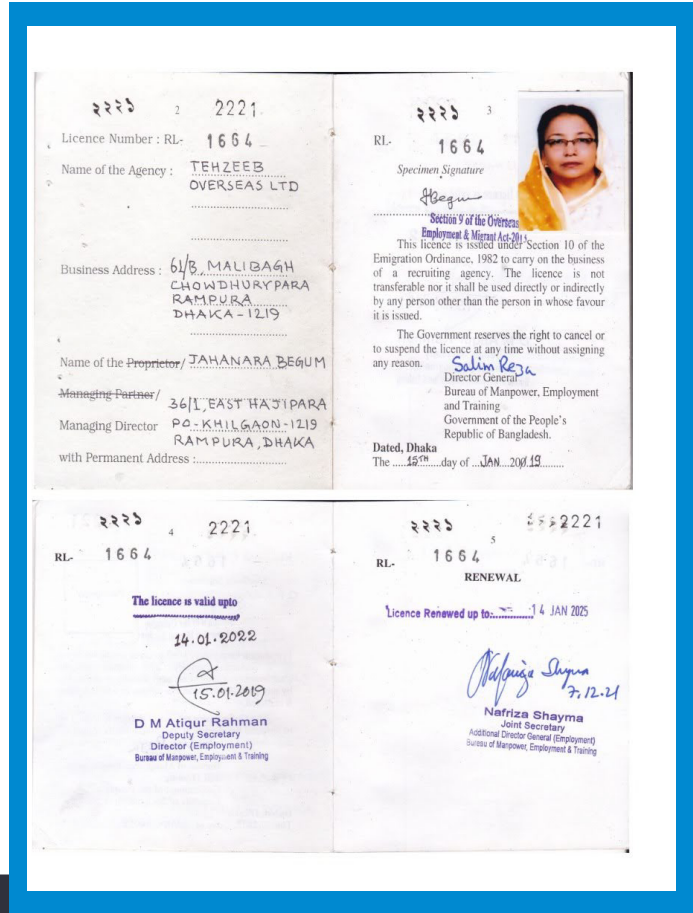 ২২২১ 2 2221
Licence Number : RL- 1664
Name of the Agency : TEHZEEB
OVERSEAS LTD
Business Address : 61/B, MALIBAGH
CHOWDHURYPARA
RAMPURA
DHAKA-1219
Name of the Proprietor/ JAHANARA BEGUM
Managing Partner/
36/1, EAST HAJIPARA
Managing Director PO-KHILGAON-1219
RAMPURA, DHAKA
with Permanent Address :
২২২১ 3
RL- 1664
Specimen Signature
JBegum
Section 9 of the Overseas
Employment & Migrant Act-2013
This licence is issued under Section 10 of the
Emigration Ordinance, 1982 to carry on the business
of a recruiting agency. The licence is not
transferable nor it shall be used directly or indirectly
by any person other than the person in whose favour
it is issued.
The Government reserves the right to cancel or
to suspend the licence at any time without assigning
any reason.
Salim Reza
Director General
Bureau of Manpower, Employment
and Training
Government of the People's
Republic of Bangladesh.
Dated, Dhaka
The 15TH day of JAN 2019
২২২১ 4 2221
RL- 1664
The licence is valid upto
14.01.2022
15.01.2019
D M Atiqur Rahman
Deputy Secretary
Director (Employment)
Bureau of Manpower, Employment & Training
২২২১ 5 2221
RL- 1664
RENEWAL
Licence Renewed up to: 14 JAN 2025
Nafriza Shayma
7.12.21
Nafriza Shayma
Joint Secretary
Additional Director General (Employment)
Bureau of Manpower, Employment & Training